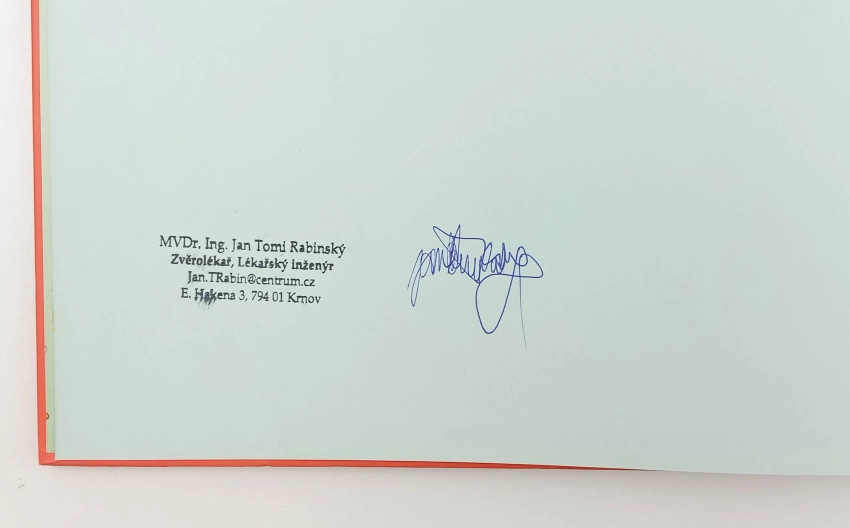 MVDr, Ing. Jan Tomi Rabinský
Zvěrolékař, Lékařský inženýr
Jan.TRabin@centrum.cz
E. Hakena 3, 794 01 Krnov